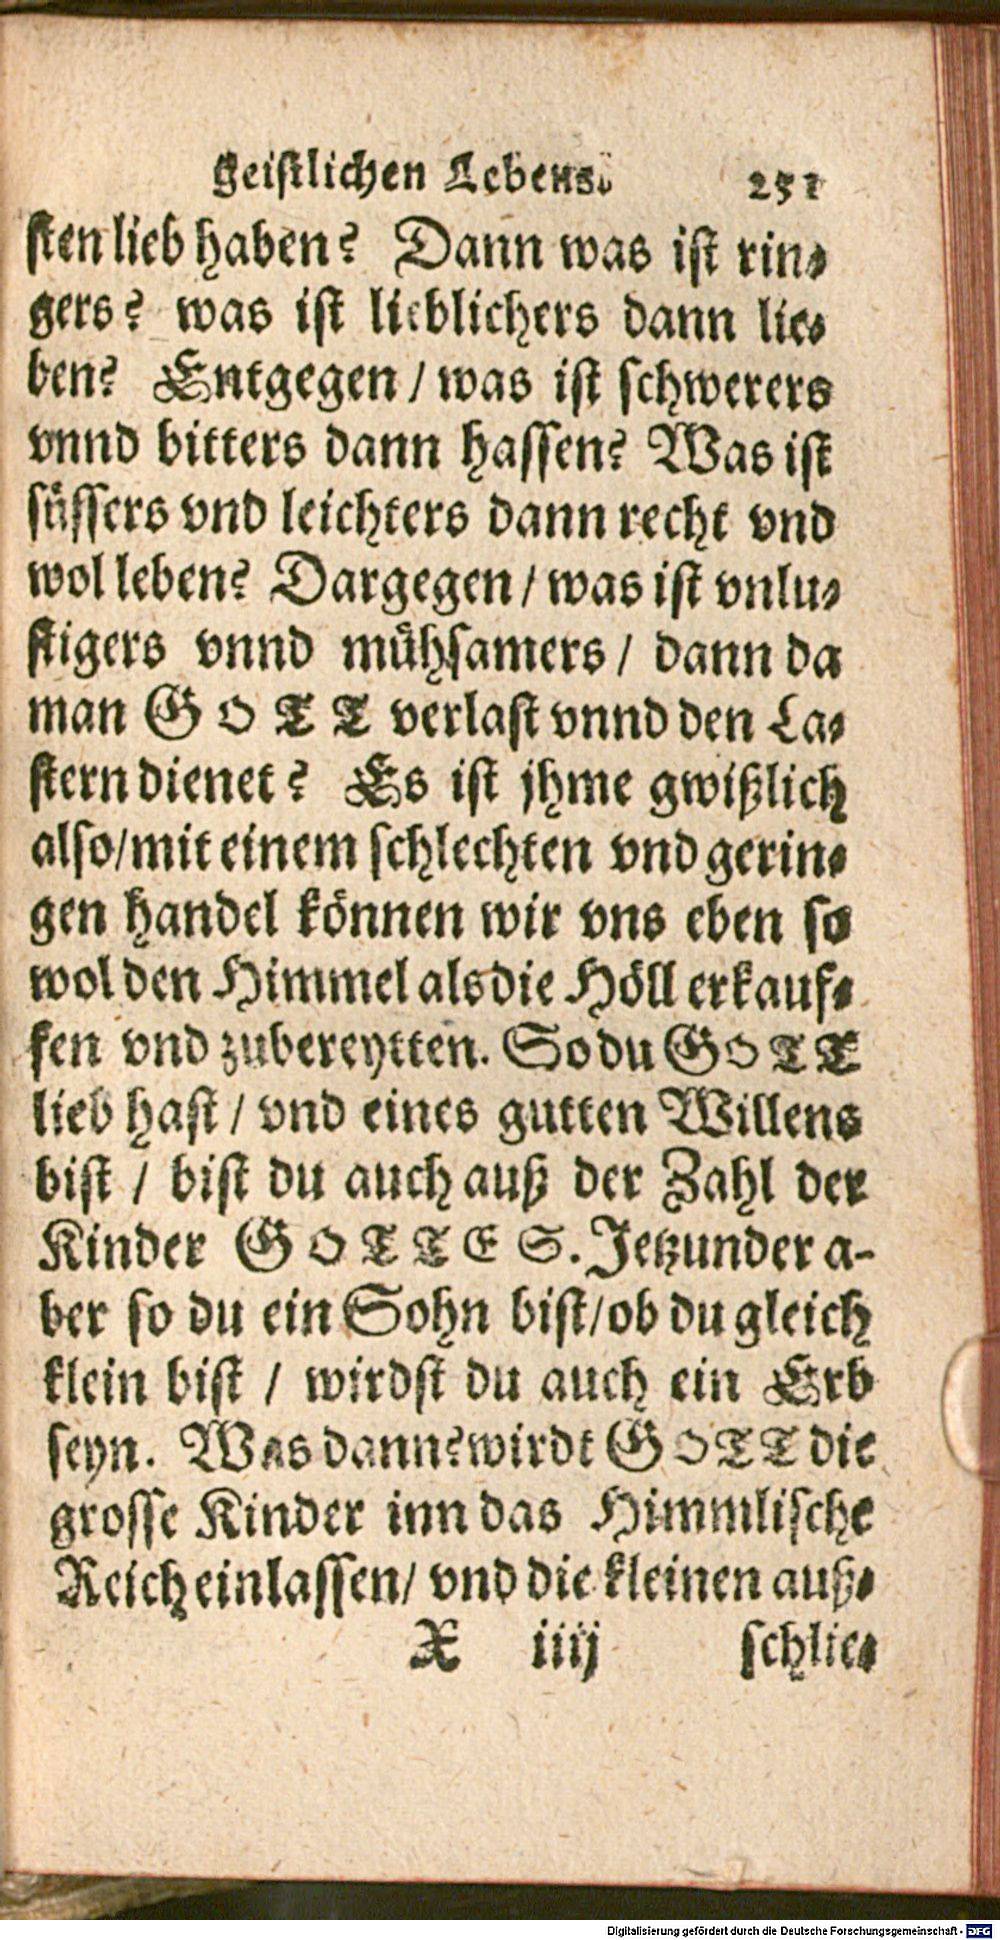 geistlichen Lebens. 251
sten lieb haben? Dann was ist rin⸗
gers? was ist lieblichers dann lie⸗
ben? Entgegen / was ist schwerers
vnnd bitters dann hassen? Was ist
süssers vnd leichters dann recht vnd
wol leben? Dargegen / was ist vnlu⸗
stigers vnnd mühsamers / dann da
man GOTT verlast vnnd den La⸗
stern dienet? Es ist jhme gwißlich
also / mit einem schlechten vnd gerin⸗
gen handel können wir vns eben so
wol den Himmel als die Höll erkauf⸗
fen vnd zubereytten. So du GOTT
lieb hast / vnd eines gutten Willens
bist / bist du auch auß der Zahl der
Kinder GOTTES. Jetzunder a-
ber so du ein Sohn bist / ob du gleich
klein bist / wirdst du auch ein Erb
seyn. Was dann? wirdt GOTT die
grosse Kinder inn das Himmlische
Reich einlassen / vnd die kleinen auß⸗
X iiij schlie⸗
Digitalisierung gefördert durch die Deutsche Forschungsgemeinschaft - DFG